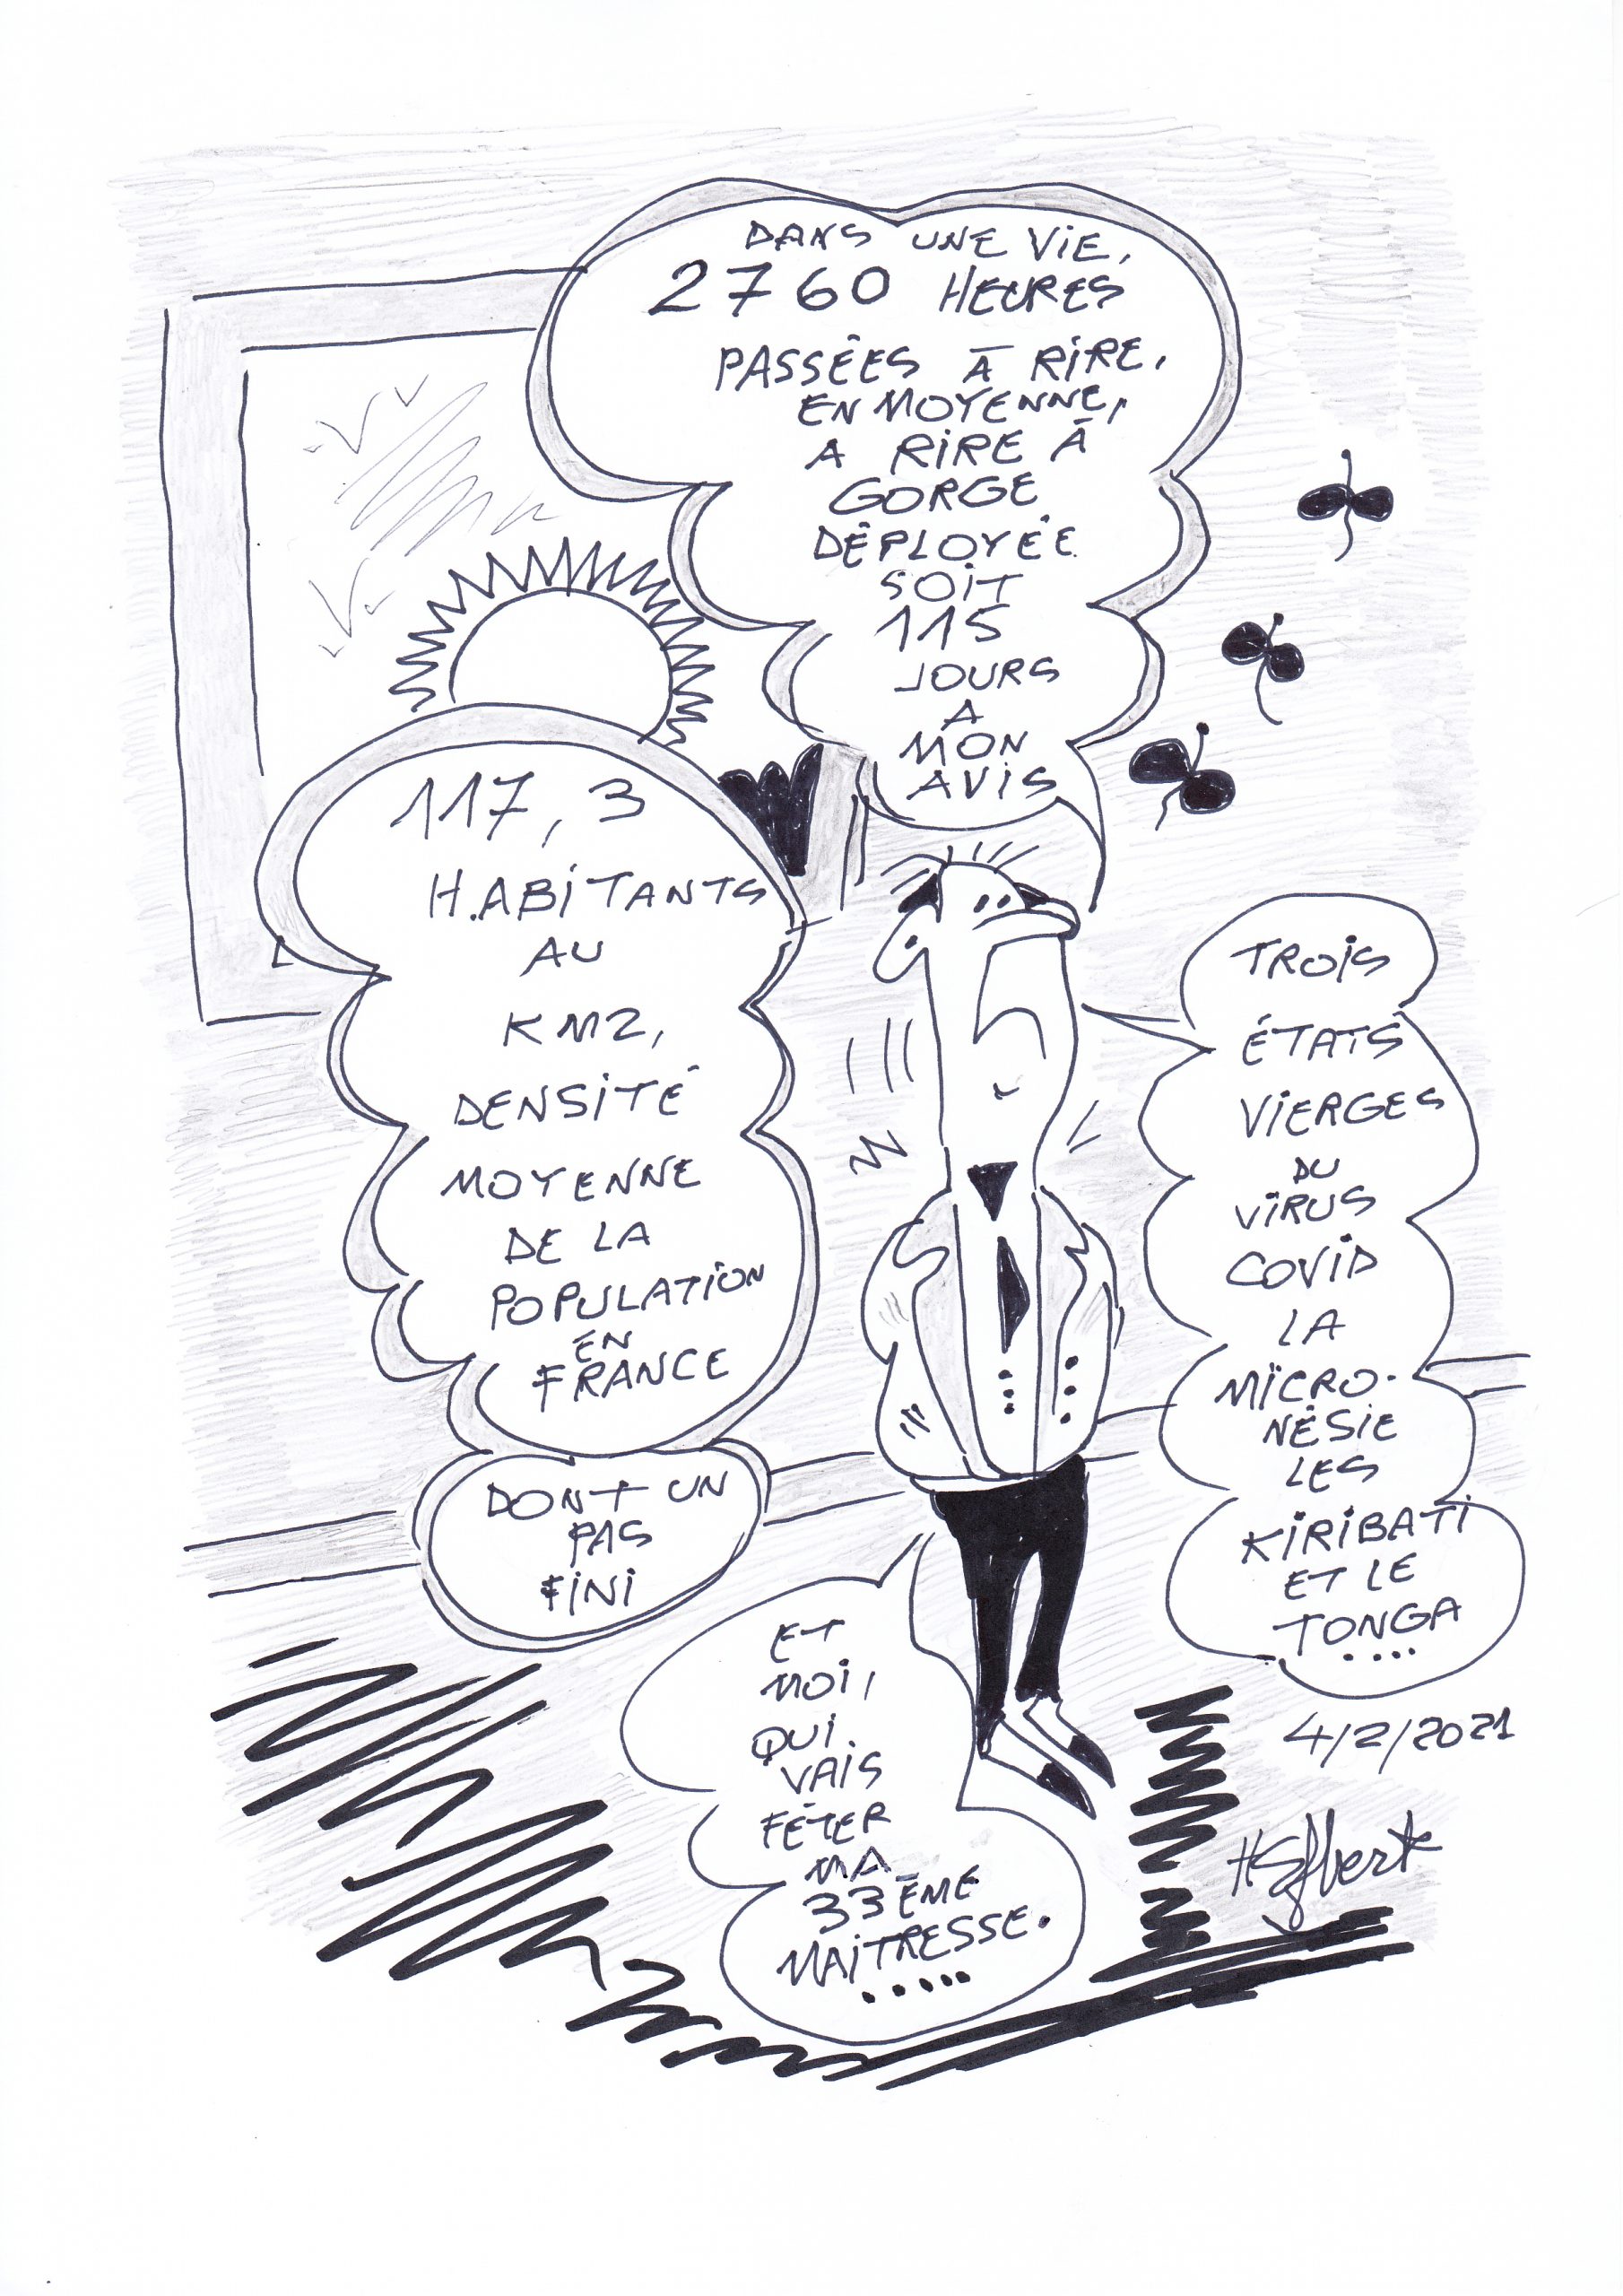 DANS UNE VIE,
2760 HEURES
PASSÉES À RIRE,
EN MOYENNE,
A RIRE À
GORGE
DÉPLOYÉE
SOIT
115
JOURS
A
MON
AVIS
117,3
HABITANTS
AU
KM2,
DENSITÉ
MOYENNE
DE LA
POPULATION
EN
FRANCE
DONT UN
PAS
FINI
TROIS
ÉTATS
VIERGES
DU
VIRUS
COVID
LA
MICRO-
NÉSIE
LES
KIRIBATI
ET LE
TONGA
....
ET
MOI,
QUI
VAIS
FÊTER
MA
33ÈME
MAITRESSE.
.....
4/2/2021